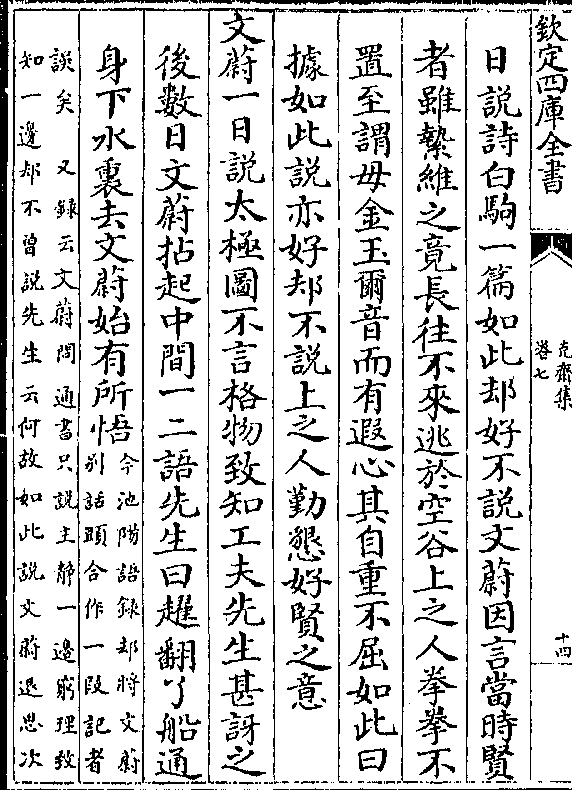 欽定四庫全書
克齋集
卷七
十四
日說詩白駒一篇如此却好不說文蔚因言當時賢
者雖縶維之竟長往不來逃於空谷上之人拳拳不
置至謂毋金玉爾音而有遐心其自重不屈如此曰
據如此說亦好却不說上之人勤懇好賢之意
文蔚一日說太極圖不言格物致知工夫先生甚訝之
後數日文蔚拈起中間一二語先生曰趯翻了船通
身下水裏去文蔚始有所悟今池陽語錄却將文蔚
别話頭合作一段記者
誤矣 又錄云文蔚問通書只說主静一邊窮理致
知一邊却不曾說先生云何故如此說文蔚退思次